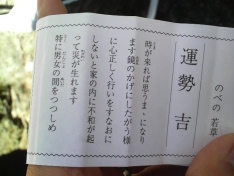 のべの 若草
運勢 吉
時が来れば思うまゝになり
ます鏡のかげにしたがう様
に心正しく行いをすなおに
しないと家の内に不和が起
って災が生れます
特に男女の間をつつしめ